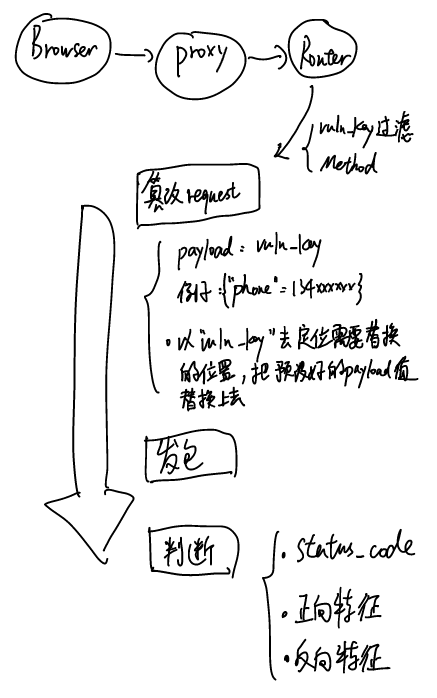 Browser
proxy
Router
vuln_key过滤
Method
篡改request
payload: vuln_key
例子:{"phone"=134xxxxxx}
·以"vuln_key"去定位需要替换
的位置,把预设好的payload值
替换上去
发包
判断
·status_code
·正向特征
·反向特征